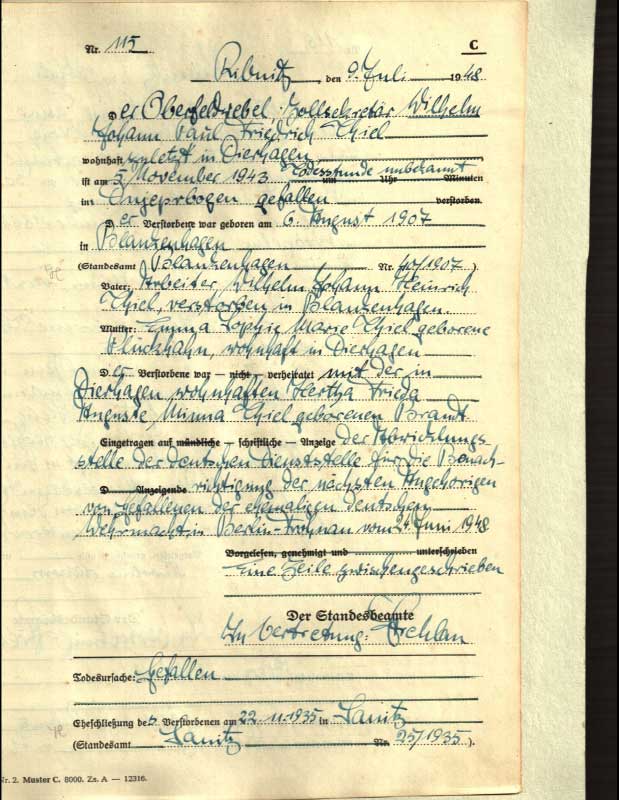 Nr. 115 C
Ribnitz, den 9. Juli 1948
Der Oberfeldwebel, Zollsekretär Wilhelm
Johann Paul Friedrich Thiel
wohnhaft zuletzt in Dierhagen,
ist am 5. November 1943 Todesstunde unbekannt um Uhr Minuten
in gefallen verstorben.
Der Verstorbene war geboren am 6. August 1907
in Blanzenhagen
(Standesamt Blanzenhagen Nr. 40/1907).
Vater: Arbeiter, Wilhelm Johann Heinrich
Thiel, verstorben in Blanzenhagen.
Mutter: Emma Sophie Marie Thiel geborene
Plückhahn, wohnhaft in Dierhagen
Der Verstorbene war — nicht — verheiratet mit der in
Dierhagen wohnhaften Hertha Frieda
Auguste Minna Thiel geborenen Brandt
Eingetragen auf mündliche — schriftliche — Anzeige der Abwicklungs
stelle der deutschen Dienststelle für die Benach-
D Anzeigende richtigung der nächsten Angehörigen
von Gefallenen der ehemaligen deutschen
Wehrmacht in Berlin-Frohnau vom 24. Juni 1948
Vorgelesen, genehmigt und unterschrieben
Eine Zeile zwischengeschrieben
Der Standesbeamte
In Vertretung:
Todesursache: Gefallen
Eheschließung des Verstorbenen am 22.11.1935 in Sanitz
(Standesamt Sanitz Nr. 25/1935).
Nr. 2. Muster C. 8000. Zs. A — 12316.